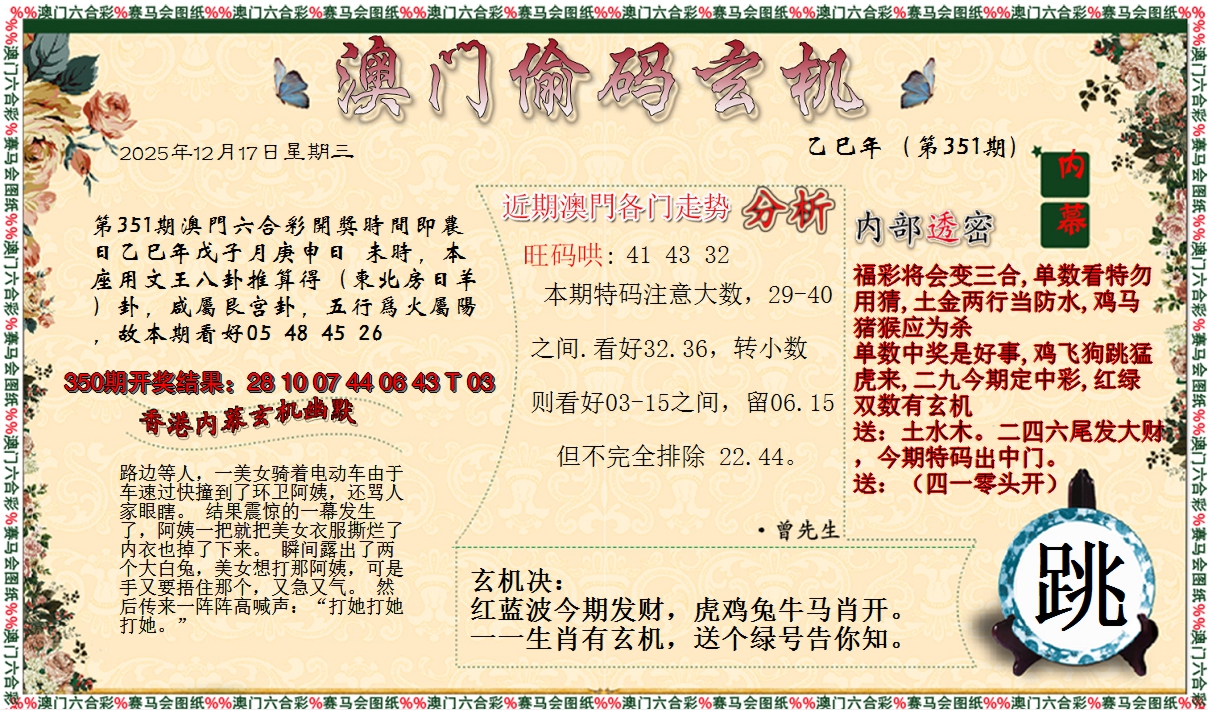 %%澳门六合彩%赛马会图纸%%澳门六合彩%赛马会图纸%%澳门六合彩%赛马会图纸%%澳门六合彩%赛马会图纸%%澳门六合彩%赛马会图纸%%澳门六合彩%赛马会图纸%%
澳门偷码玄机
2025年12月17日星期三
乙巳年（第351期）
内幕
第351期澳門六合彩開獎時間即農
日乙巳年戊子月庚申日 未時，本
座用文王八卦推算得（東北房日羊
）卦，咸屬艮宫卦，五行爲火屬陽
，故本期看好05 48 45 26
350期开奖结果：28 10 07 44 06 43 T 03
香港内幕玄机幽默
路边等人，一美女骑着电动车由于
车速过快撞到了环卫阿姨，还骂人
家眼瞎。 结果震惊的一幕发生
了，阿姨一把就把美女衣服撕烂了
内衣也掉了下来。 瞬间露出了两
个大白兔，美女想打那阿姨，可是
手又要捂住那个，又急又气。 然
后传来一阵阵高喊声：“打她打她
打她。”
近期澳門各门走势 分析
旺码哄: 41 43 32
本期特码注意大数，29-40
之间.看好32.36，转小数
则看好03-15之间，留06.15
但不完全排除 22.44。
·曾先生
内部透密
福彩将会变三合,单数看特勿
用猜,土金两行当防水,鸡马
猪猴应为杀
单数中奖是好事,鸡飞狗跳猛
虎来,二九今期定中彩,红绿
双数有玄机
送：土水木。二四六尾发大财
，今期特码出中门。
送：（四一零头开）
玄机决：
红蓝波今期发财，虎鸡兔牛马肖开。
一一生肖有玄机，送个绿号告你知。
跳
%%澳门六合彩%赛马会图纸%%澳门六合彩%赛马会图纸%%澳门六合彩%赛马会图纸%%澳门六合彩%赛马会图纸%%澳门六合彩%赛马会图纸%%澳门六合彩%赛马会图纸%%